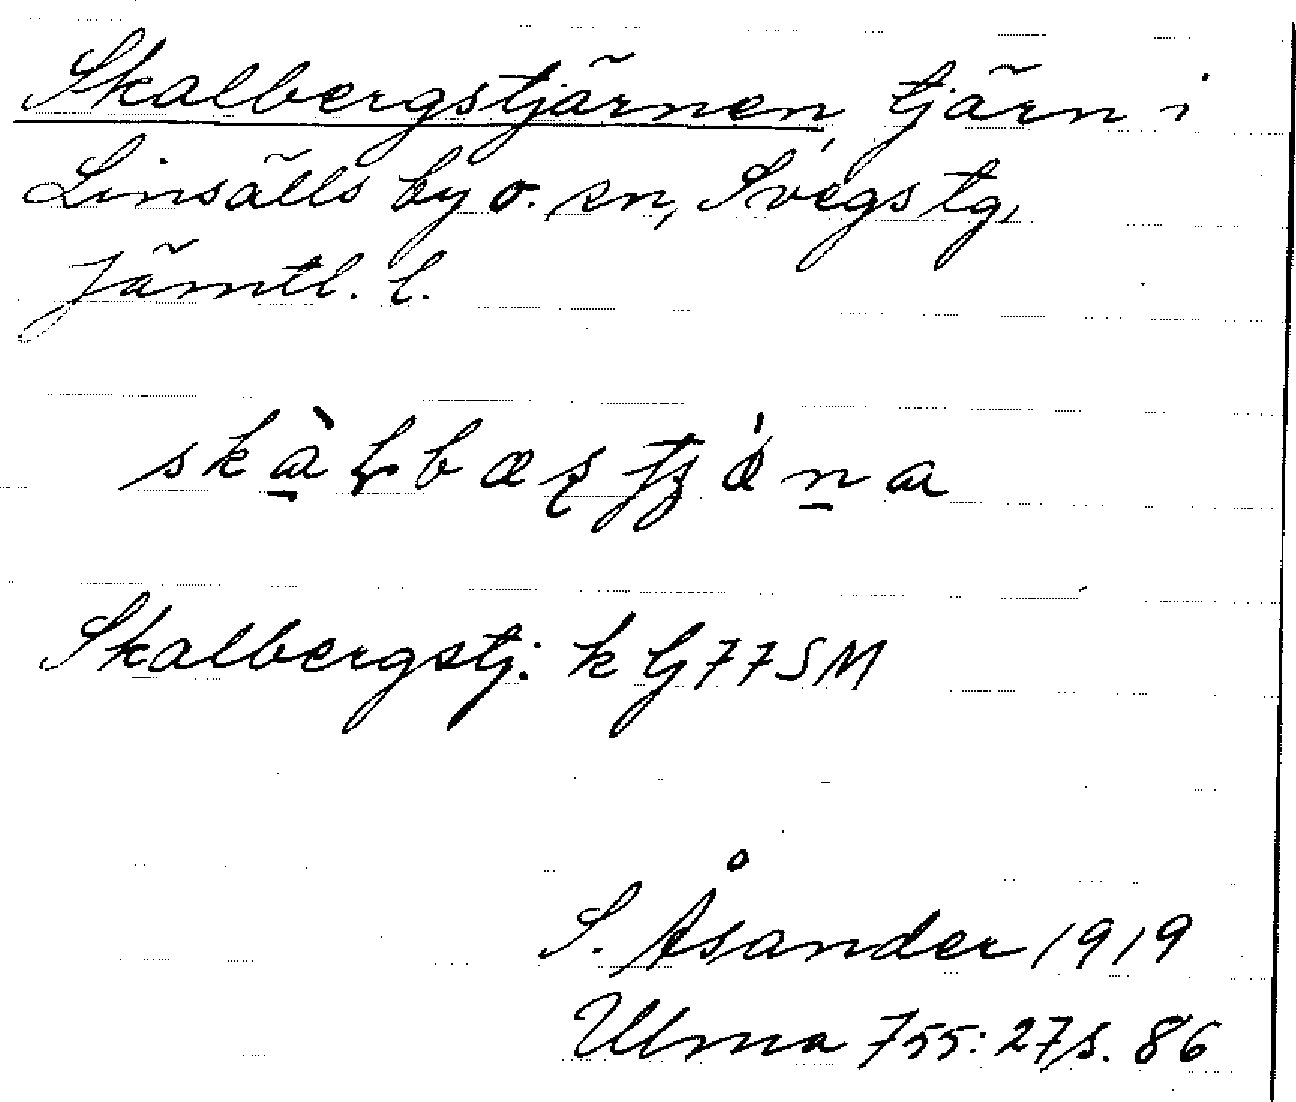 Skalbergstjärnen, tjärn i
Linsälls by o. sn, Svegs tg,
Jämtl. l.
Skalbergstj. k Lj 77 SM
S. Åsander 1919
Ulma 755:27 s. 86